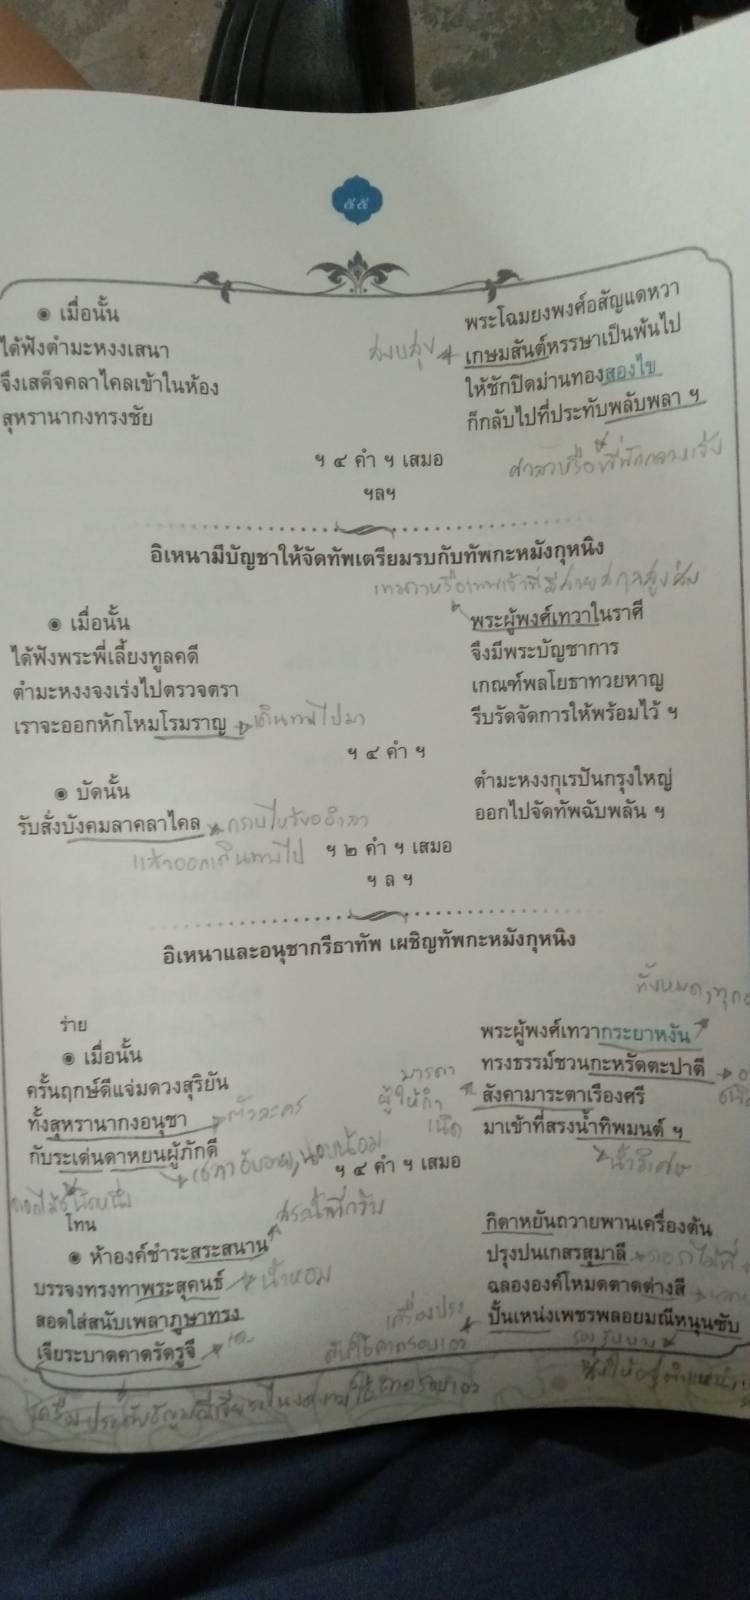 ๕๕
๏ เมื่อนั้น พระโฉมยงพงศ์อสัญแดหวา
ได้ฟังตำมะหงงเสนา เกษมสันต์หรรษาเป็นพ้นไป
สงบสุข
จึงเสด็จคลาไคลเข้าในห้อง ให้ชักปิดม่านทองสองไข
สุหรานากงทรงชัย ก็กลับไปที่ประทับพลับพลา ฯ
ฯ ๔ คำ ฯ เสมอ
ศาลาหรือที่พักกลาง
ฯลฯ
อิเหนามีบัญชาให้จัดทัพเตรียมรบกับทัพกะหมังกุหนิง
เทวดาหรือเทพเจ้าที่มีสายสกุลสูงส่ง
๏ เมื่อนั้น พระผู้พงศ์เทวาในราศี
ได้ฟังพระพี่เลี้ยงทูลคดี จึงมีพระบัญชาการ
ตำมะหงงจงเร่งไปตรวจตรา เกณฑ์พลโยธาทวยหาญ
เราจะออกหักโหมโรมราญ รีบรัดจัดการให้พร้อมไว้ ฯ
เดินทางไปมา
ฯ ๔ คำ ฯ
๏ บัดนั้น ตำมะหงงกุเรปันกรุงใหญ่
รับสั่งบังคมลาคลาไคล ออกไปจัดทัพฉับพลัน ฯ
กราบไหว้ขออำลา
แล้วออกเดินทางไป
ฯ ๒ คำ ฯ เสมอ
ฯ ล ฯ
อิเหนาและอนุชากรีธาทัพ เผชิญทัพกะหมังกุหนิง
ทั้งหมด,ทุก
ร่าย
๏ เมื่อนั้น พระผู้พงศ์เทวากระยาหงัน
ครั้นฤกษ์ดีแจ่มดวงสุริยัน ทรงธรรม์ชวนกะหรัดตะปาตี
มารดา
ผู้ให้กำ
เนิด
ทั้งสุหรานากงอนุชา สังคามาระตาเรืองศรี
ตัวละคร
กับระเด่นดาหยนผู้ภักดี มาเข้าที่สรงน้ำทิพมนต์ ฯ
นอบน้อม
น้ำวิเศษ
ฯ ๔ คำ ฯ เสมอ
โทน
๏ ห้าองค์ชำระสระสนาน กิดาหยันถวายพานเครื่องต้น
บรรจงทรงทาพระสุคนธ์ ปรุงปนเกสรสุมาลี
น้ำหอม
สอดใส่สนับเพลาภูษาทรง ฉลององค์โหมดตาดต่างสี
เจียระบาดคาดรัดรูจี ปั้นเหน่งเพชรพลอยมณีหนุนซับ